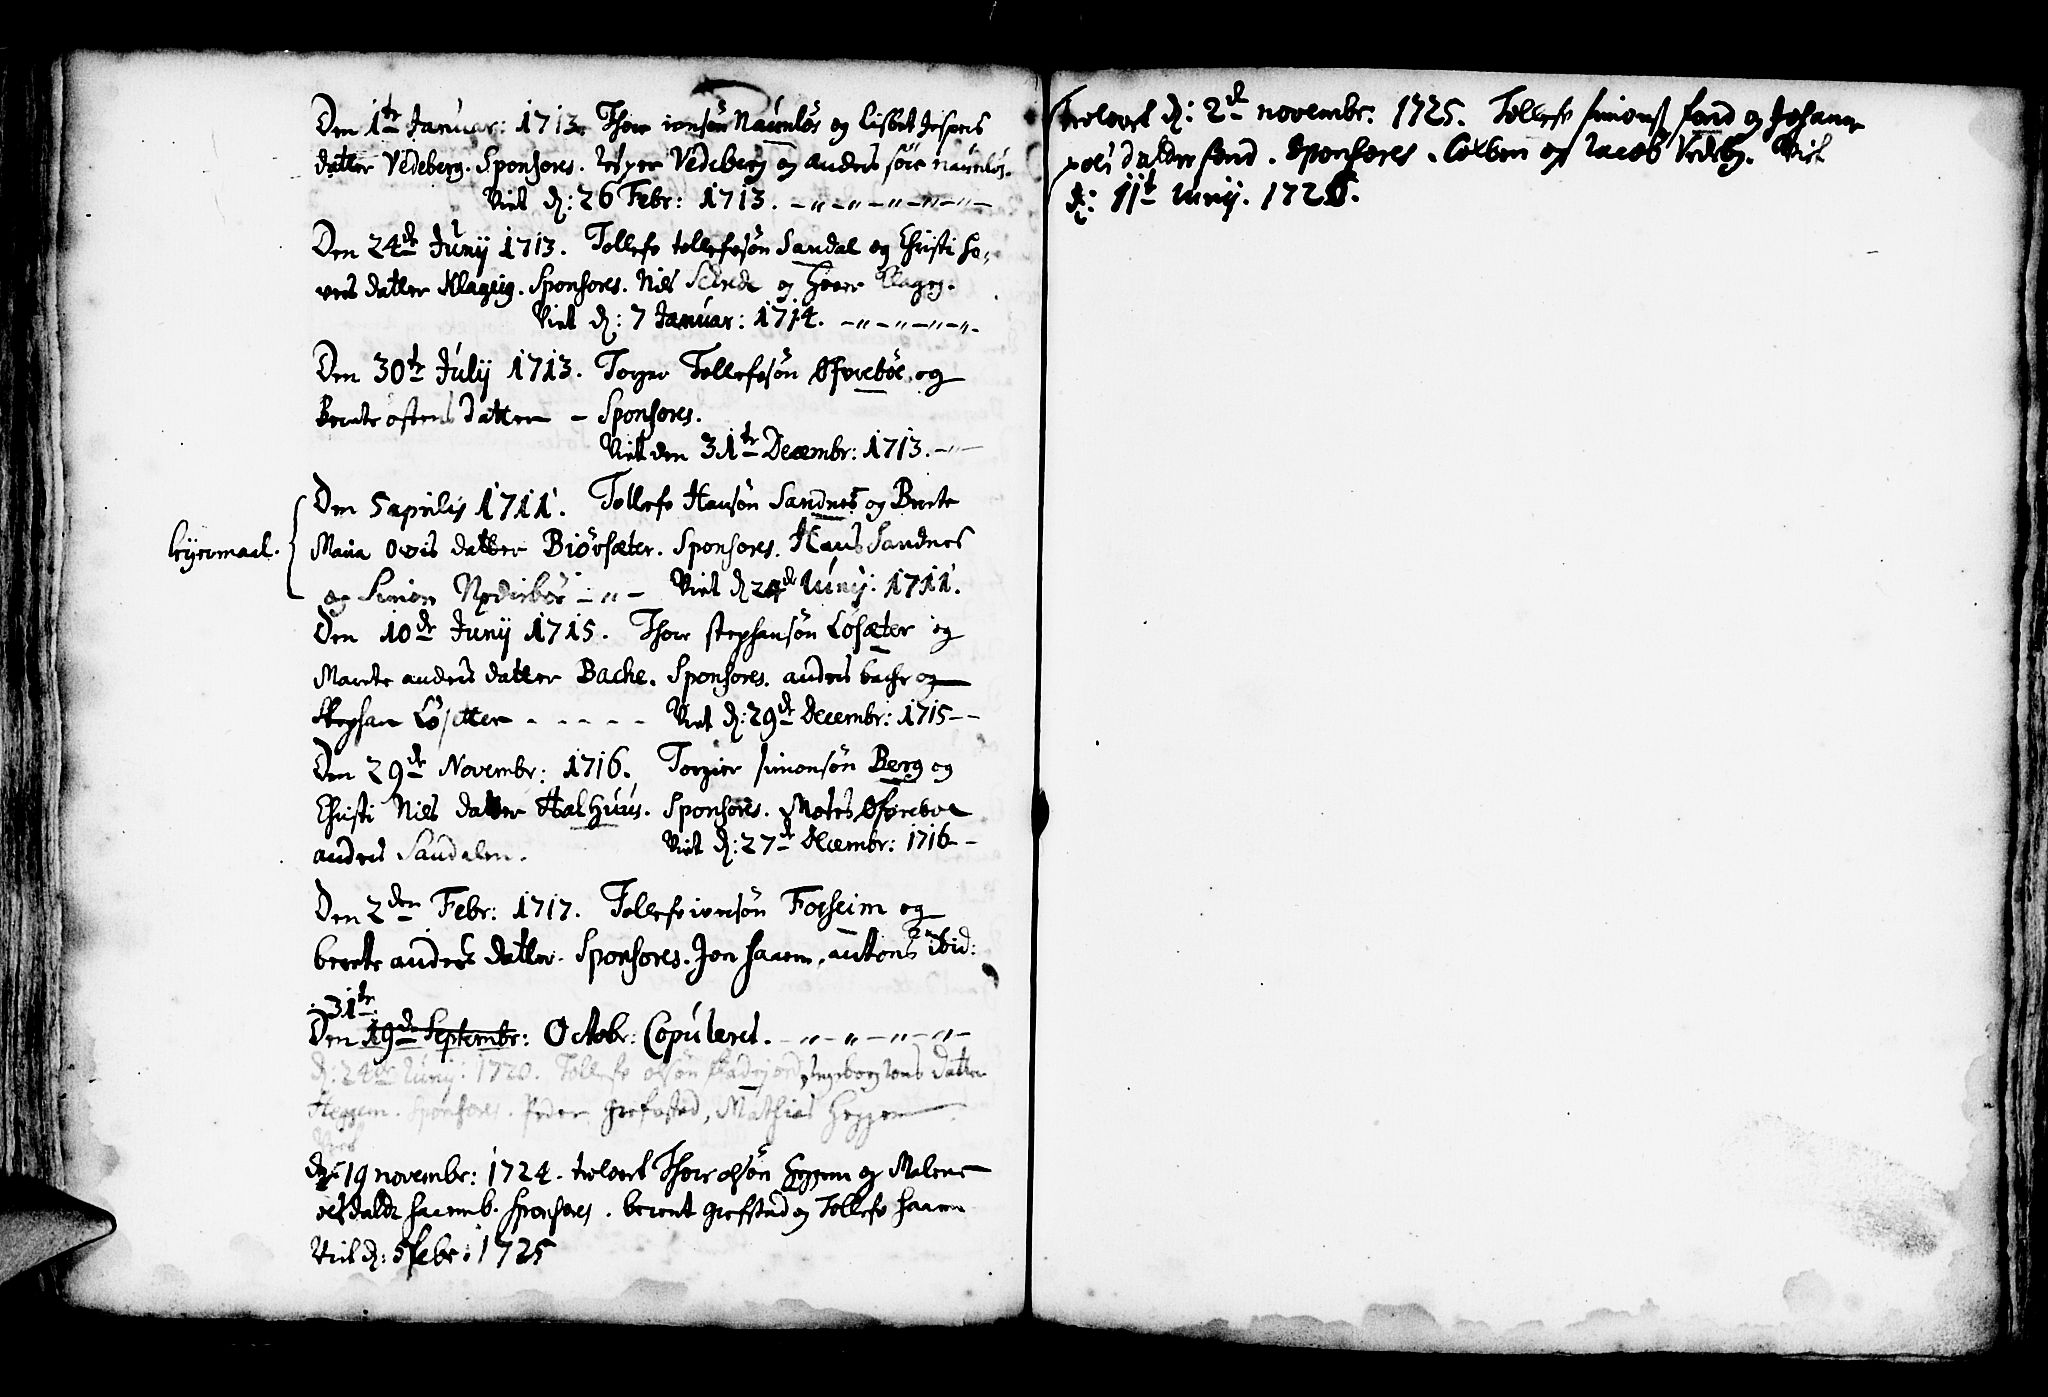 Den 1te Januar: 1713. Thore ionsøn Naúnløs og Lisbet Jespers
datter Vedeberg. Sponsores. Vedeberg og anders naúnløs.
Viet d: 26 Febr: 1713.
Den 24de Junij 1713. Tollefe tollefesøn Sandal og Christi Ha-
vers datter Klageig. Sponsores. Niels og
Viet d: 7 Januar: 1714.
Den 30te Júlij 1713. Torger Tollefesøn Øfrebøe og
Berete østens Datter – Sponsores.
Viet den 31te Decembr: 1713.
Den 5 aprilis 1711. Tollefe Hansøn Sandnes og Berete
Leyermaal.
Maria datter Biørsæter. Sponsores. Hans Sandnes
og Simon Viet d 24de Iúnij: 1711.
Den 10de Junij 1715. Thore stephansøn Løsæter og
Marete anders datter Bache. Sponsores. anders bache og
Stephan Løsetter - - - - - Viet d: 29de Decembr: 1715 - -
Den 29de Novembr: 1716. Torgier simonsøn Berg og
Christi Niels datter Halhúús. Sponsores. Mates Øfreboe
anders Sandalen. Viet d: 27de Decembr: 1716 - -
Den 2den Febr: 1717. Tollefe ionsøn Forheim og
berete anders datter. Sponsores. Jon haarem. ibid:
31te
Den 19de Septembr: Octobr: Copúleret.
d: 24de Iúnij: 1720. Tollefe olsøn Ingeborg Ions datter
Heggem. Sponsores. Peder grefstad, Mathias Heggem
Viet
d: 19 novembr: 1724. trolovet Thore olsøn Heggem og Malene
haaremb. Sponsores. berent grefstad og Tollefe haarem
Viet d: 5 febr: 1725
Trolovet d: 2d novembr. 1725. Tollefe simons og Johana
. Sponsores. Colben og Iacob Vedebg. Viet
d: 11t Iunij. 1726.